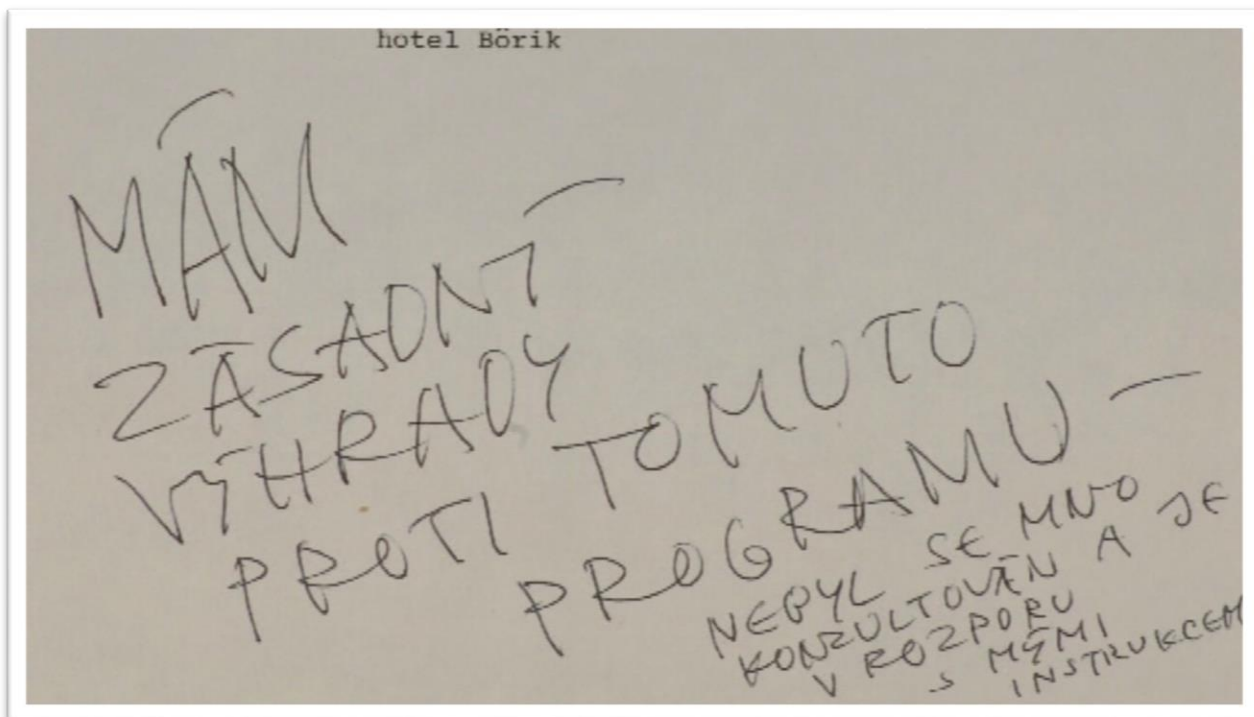 hotel Bôrik
MÁM
ZÁSADNÍ
VÝHRADY
PROTI TOMUTO
PROGRAMU —
NEBYL SE MNO
KONZULTOVÁN A JE
V ROZPORU
S MÝMI
INSTRUKCEM